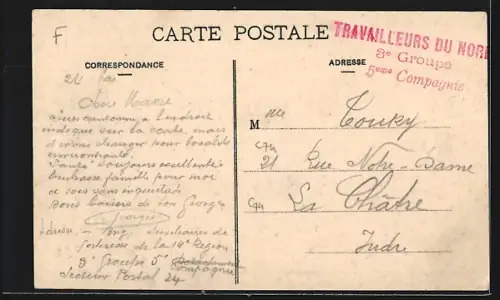 F
CARTE POSTALE
TRAVAILLEURS DU NORD
3e Groupe
5eme Compagnie
CORRESPONDANCE
ADRESSE
21
Chère Marie
à l'endroit
indiqué sur la carte, mais
changer pour localité
environnante.
Santé toujours excellente
Embrasse famille pour moi
et sois sans inquiétude
Bons baisers de ton Georges
Georges
Auxiliaires de
forteresse de la 14e Région
3e Groupe 5e Compagnie
Secteur Postal 24
M lle Touky
21 Rue Notre-Dame
La Châtre
Indre